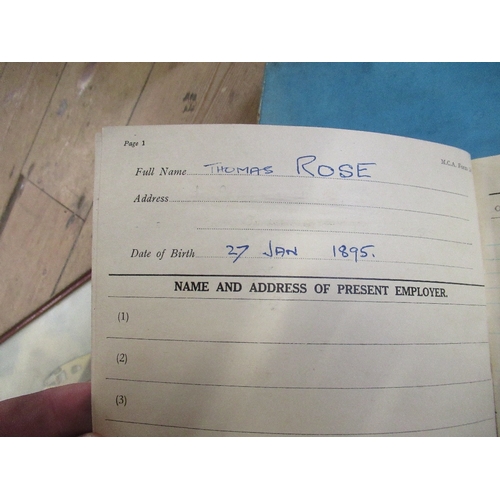 Page 1
M.C.A. Form
Full Name THOMAS ROSE
Address
Date of Birth 27 JAN 1895.
NAME AND ADDRESS OF PRESENT EMPLOYER.
(1)
(2)
(3)